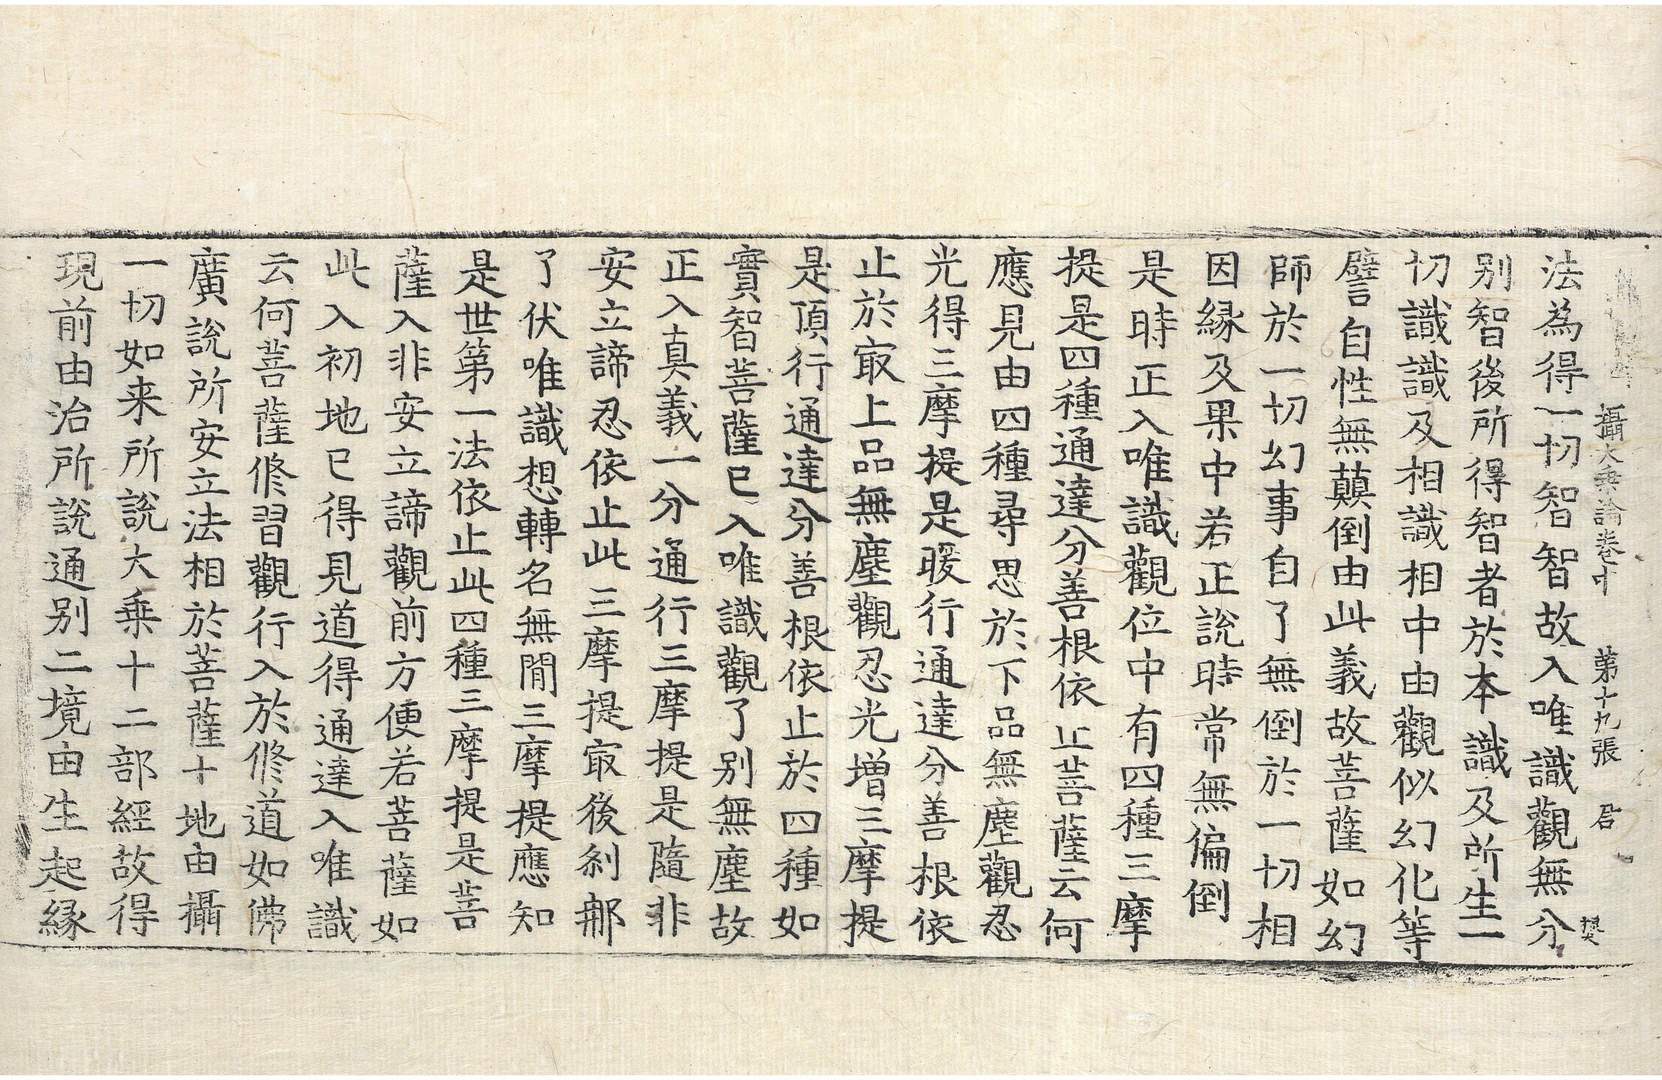 攝大乘論卷十 第十九張
法為得一切智智故入唯識觀無分
别智後所得智者於本識及所生一
切識識及相識相中由觀似幻化等
譬自性無顛倒由此義故菩薩如幻
師於一切幻事自了無倒於一切相
因緣及果中若正說時常無偏倒
是時正入唯識觀位中有四種三摩
提是四種通達分善根依止菩薩云何
應見由四種尋思於下品無塵觀忍
光得三摩提是暖行通達分善根依
止於㝡上品無塵觀忍光增三摩提
是頂行通達分善根依止於四種如
實智菩薩已入唯識觀了别無塵故
正入真義一分通行三摩提是隨非
安立諦忍依止此三摩提㝡後刹那
了伏唯識想轉名無間三摩提應知
是世第一法依止此四種三摩提是菩
薩入非安立諦觀前方便若菩薩如
此入初地已得見道得通達入唯識
云何菩薩修習觀行入於修道如佛
廣說所安立法相於菩薩十地由攝
一切如来所說大乘十二部經故得
現前由治所說通别二境由生起緣